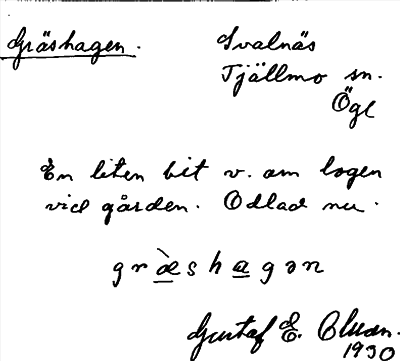 Gräshagen.
Svalnäs
Tjällmo sn.
Ögl
En liten bit v. om logen
vid gården. Odlad nu.
græ̀shagən
Gustaf E.
1930